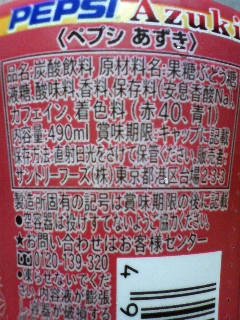 PEPSI Azuki
〈ペプシ あずき〉
品名:炭酸飲料 原材料名:果糖ぶどう糖
液糖、酸味料、香料、保存料(安息香酸Na)、
カフェイン、着色料(赤40、青1)
内容量:490ml 賞味期限:キャップに記載
保存方法:直射日光をさけて保管ください。販売者:
サントリーフーズ(株)東京都港区台場2-3-3
製造所固有の記号は賞味期限の後に記載
●空容器は投げすてないよう ご協力ください。
★お問い合わせはお客様センター
0120-139-320
●凍らせないでくだ
さい。内容液が膨張し
容器が破損する
4 9